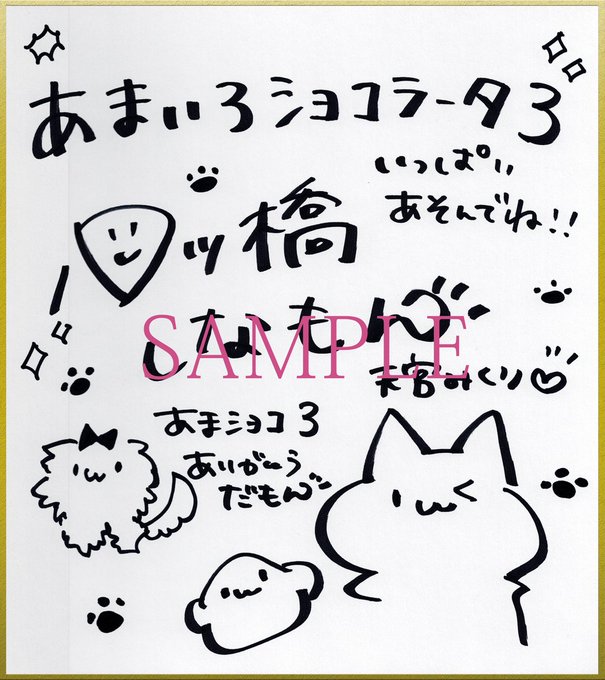 あまいろショコラータ3
いっぱい
あそんでね!!
四ツ橋
しなもん
SAMPLE
天宮みくり♡
あまショコ3
ありがとう
だもん